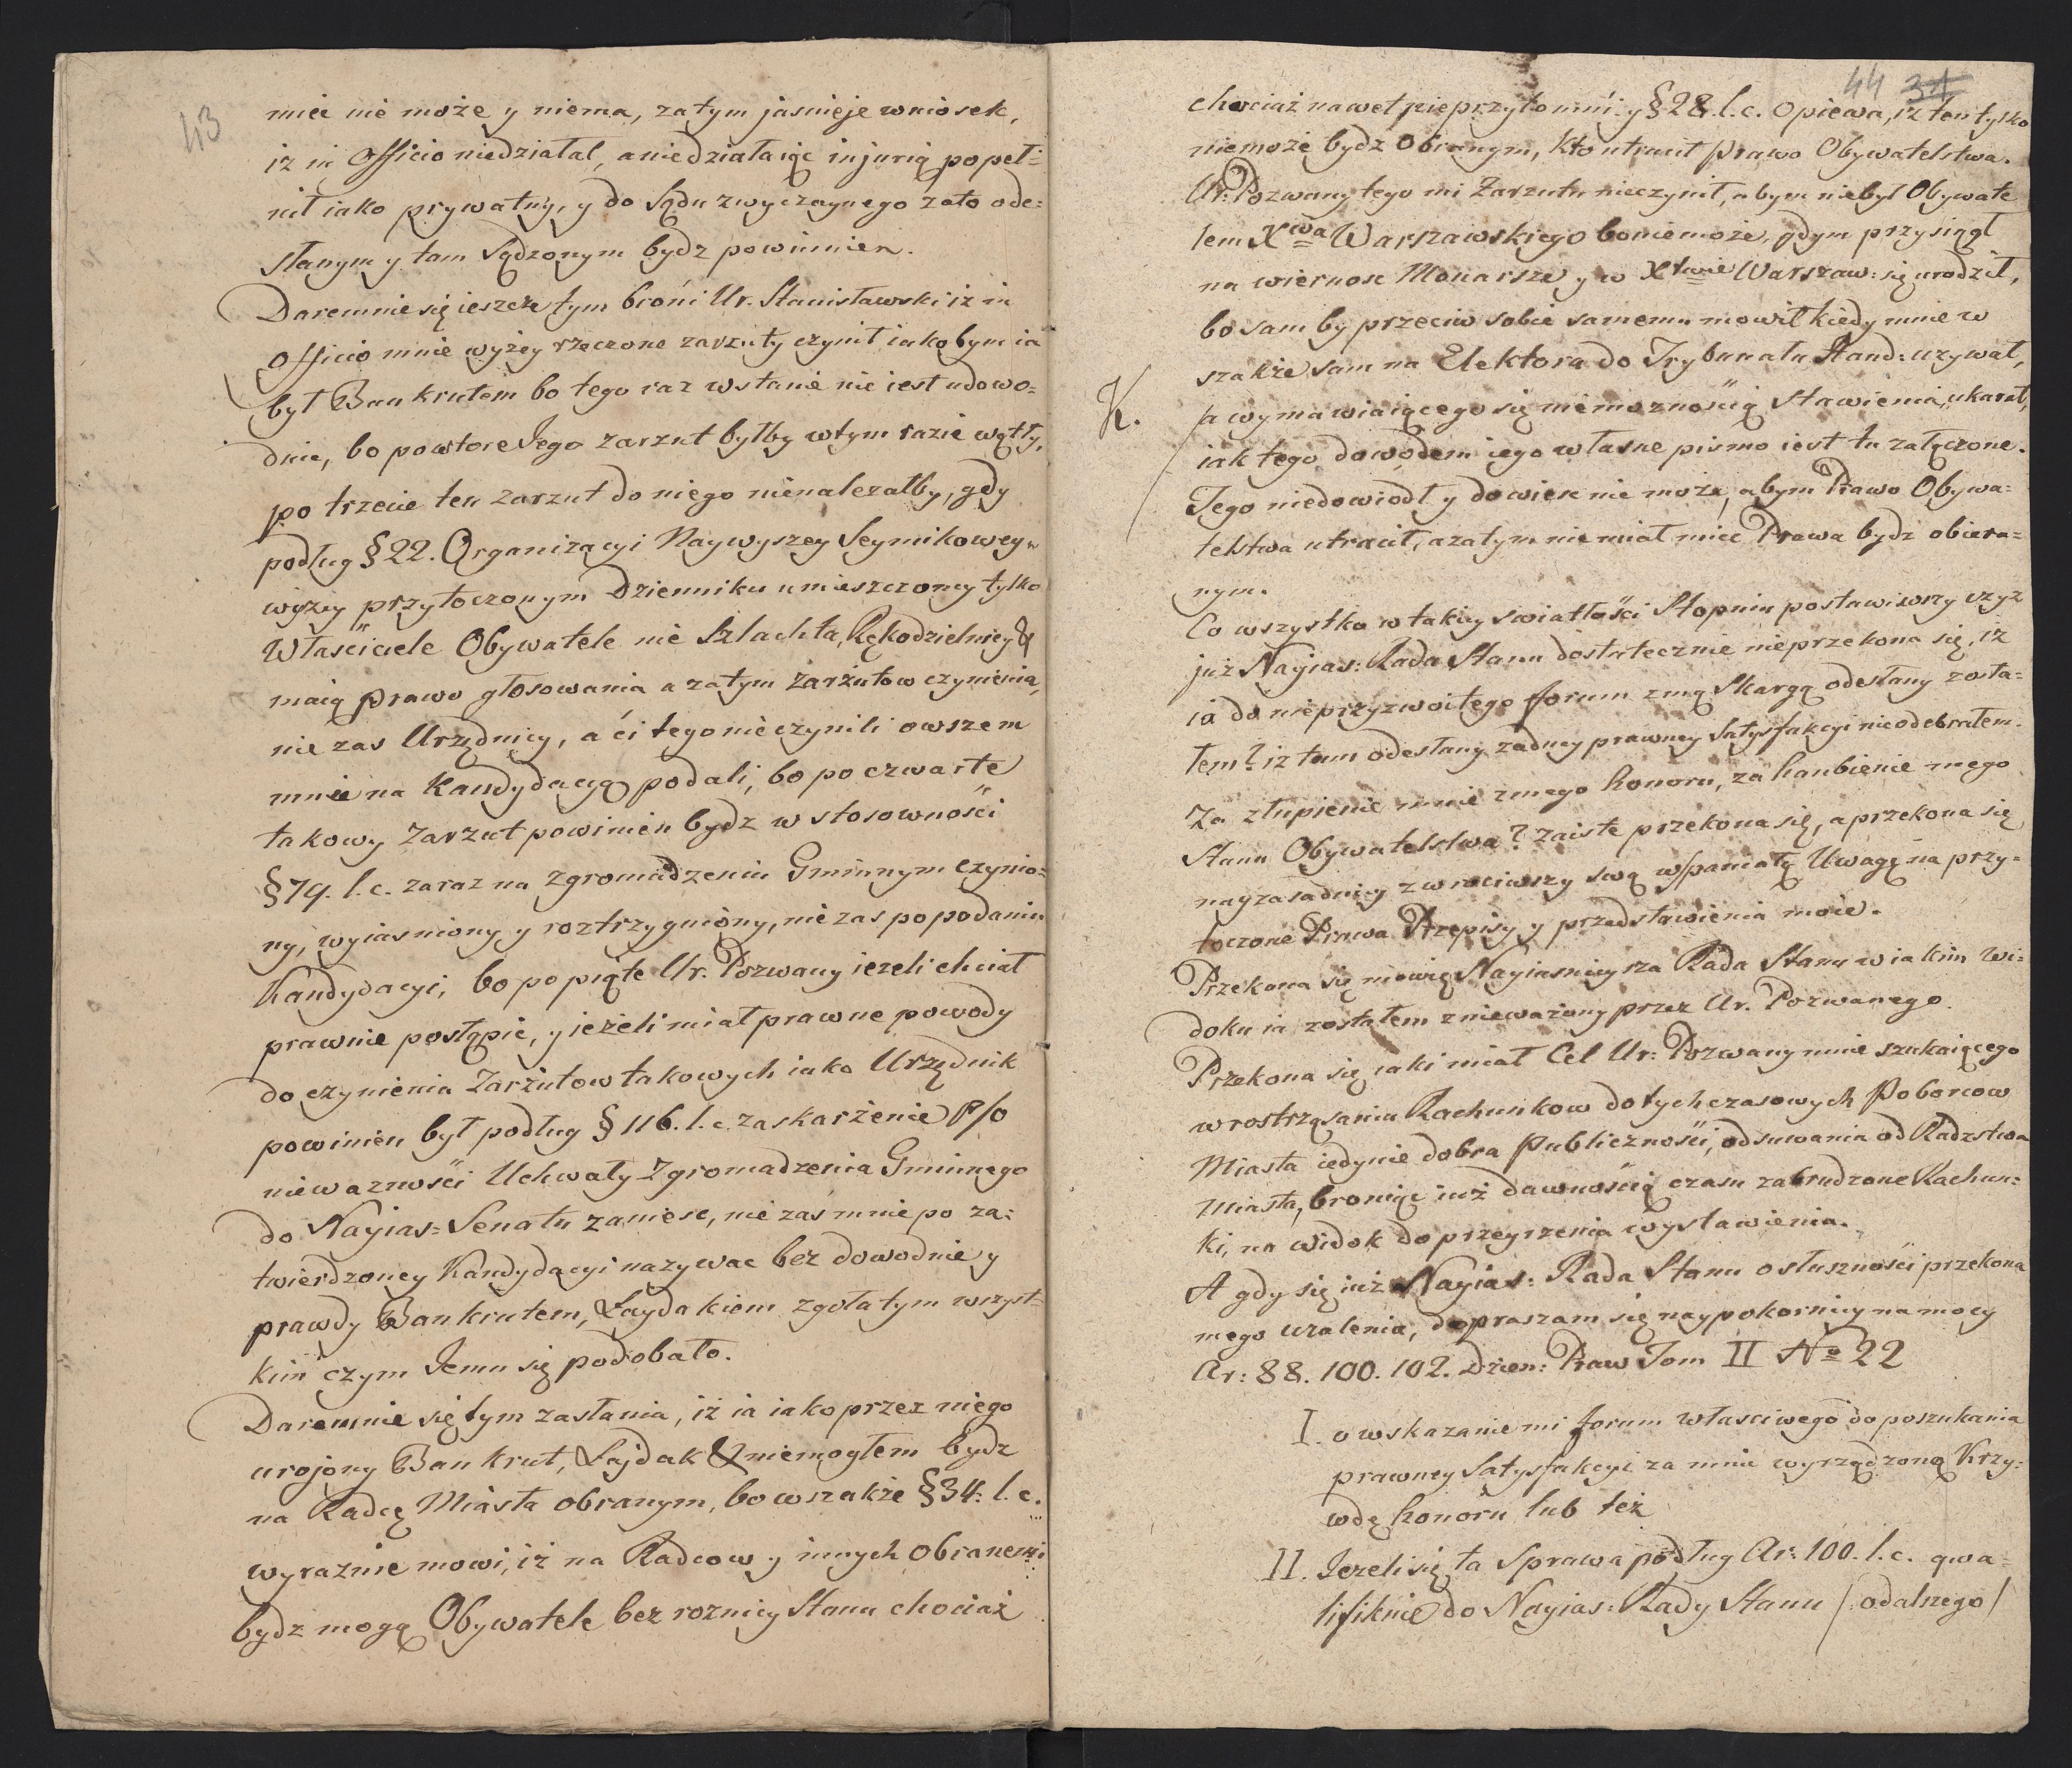 43
mieć nie może y niema, zatym jasnieje wniosek,
iż in Officio niedziałał, a niedziałaiąc injurią popeł-
nił iako prywatny, y do Sądu zwyczaynego zato ode-
słanym y tam Sądzonym bydz powinnien.
Daremnie się ieszcze tym broni Ur. Stanisławski iż in
officio mnie wyżey rzeczone zarzuty czynił iakobym ia
był Bankrutem bo tego raz wstanie nie iest udowo-
dnić, bo powtore Jego zarzut byłby wtym razie wątły,
po trzecie ten zarzut do niego nienależałby, gdy
podług §22. Organizacyi Naywyszey Seymikowey w
wyżey przytoczonym Dzienniku umieszczoney tylko
Właściciele Obywatele nie Szlachta, Rękodzielnicy &
maią prawo głosowania a zatym Zarżutow czynienia,
nie zas Urzędnicy, a ci tego nieczynili owszem
mnie na Kandydacyą podali, bo po czwarte
takowy Zarzut powinien bydz w stosowności
§79. l.c. zaraz na zgromadzeniu Gminnym czynio-
ny, wyiasniony y roztrzygniony, nie zas po podaniu
Kandydacyi, bo po piąte Ur. Pozwany ieżeli chciał
prawnie postąpić, y ieżeli miał prawne powody
do czynienia Zarżutow takowych iako Urzędnik
powinien był podług § 116. l.c. zaskarżenie P/o
nieważności Uchwały Zgromadzenia Gminnego
do Nayias: Senatu zanieść, nie zas mnie po za-
twierdzoney Kandydacyi nazywac bez dowodnie y
prawdy Bankrutem, Łaydakiem zgoła tym wszyst-
kim czym Jemu się podobało.
Daremnie się tym zasłania, iż ia iako przez niego
urojony Bankrut, Łajdak & niemogłem bydz
na Radcę Miasta obranym, bo wszakże §34. l.c.
wyraznie mowi, iż na Radcow y innych obranemi
bydz mogą Obywatele bez rożnicy Stanu chociaż
44 31
chociaż nawet nieprzytomni y §28. l.c. opiewa, iż ten tylko
niemoże bydz Obranym, kto utracił prawo Obywatelstwa.
Ur: Pozwany tego mi Zarzutu nieczynił, abym niebył Obywate
lem Xwa Warszawskiego bo niemoże, gdym przysiągł
na wierność Monarsze y w Xtwie Warszaw: się urodził,
bo sam by przeciw sobie samemu mowił kiedy mnie w
szakże sam na Elektora do Trybunału Hand: używał,
K. a wymawiaiącego się niemożnością Stawienia, ukarał,
iak tego dowodem iego własne pismo iest tu załączone.
Tego niedowiodł y dowieść nie może, abym Prawo Obywa-
telstwa utracił, a zatym nie miał mieć Prawa bydz obiera-
nym.
Co wszystko w takiey swiatłości Stopniu postawiwszy czyż
już Nayias: Rada Stanu dostatecznie nieprzekona się, iż
ia do nieprzyzwoitego forum z mą Skargą odesłany zosta-
łem? iż tam odesłany żadney prawney Satysfakcyi nieodebrałem.
Za złupienie mnie z mego honoru, za hanbienie mego
Stanu Obywatelstwa? zaiste przekona się, a przekona się
nayzasadniey zwrociwszy swą wspaniałą Uwagę na przy-
toczone Prawa Przepisy y przedstawienia moie.
Przekona się mowię Nayiasnieysza Rada Stanu w iakim wi-
doku ia zostałem znieważony przez Ur. Pozwanego.
Przekona się iaki miał Cel Ur: Pozwany mnie szukaiącego
w rostrząsaniu Rachunkow dotychczasowych Poborcow
Miasta iedynie dobra Publiczności, odsuwania od Radzstwa
Miasta, broniąc iuż dawnością czasu zabrudzone Rachun-
ki, na widok do przeyrzenia wystawienia.
A gdy się iuż Nayias: Rada Stanu o słuszności przekona
mego użalenia, dopraszam się naypokorniey na mocy
Ar: 88. 100. 102. Dzien: Praw Tom II No 22
I. o wskazanie mi forum własciwego do poszukania
prawney Satysfakcyi za mnie wyrządzoną Krzy-
wdę honoru lub też
II. Jeżeli się ta Sprawa podług Ar: 100. l.c. qwa-
lifikuie do Nayias: Rady Stanu /: odalszego /